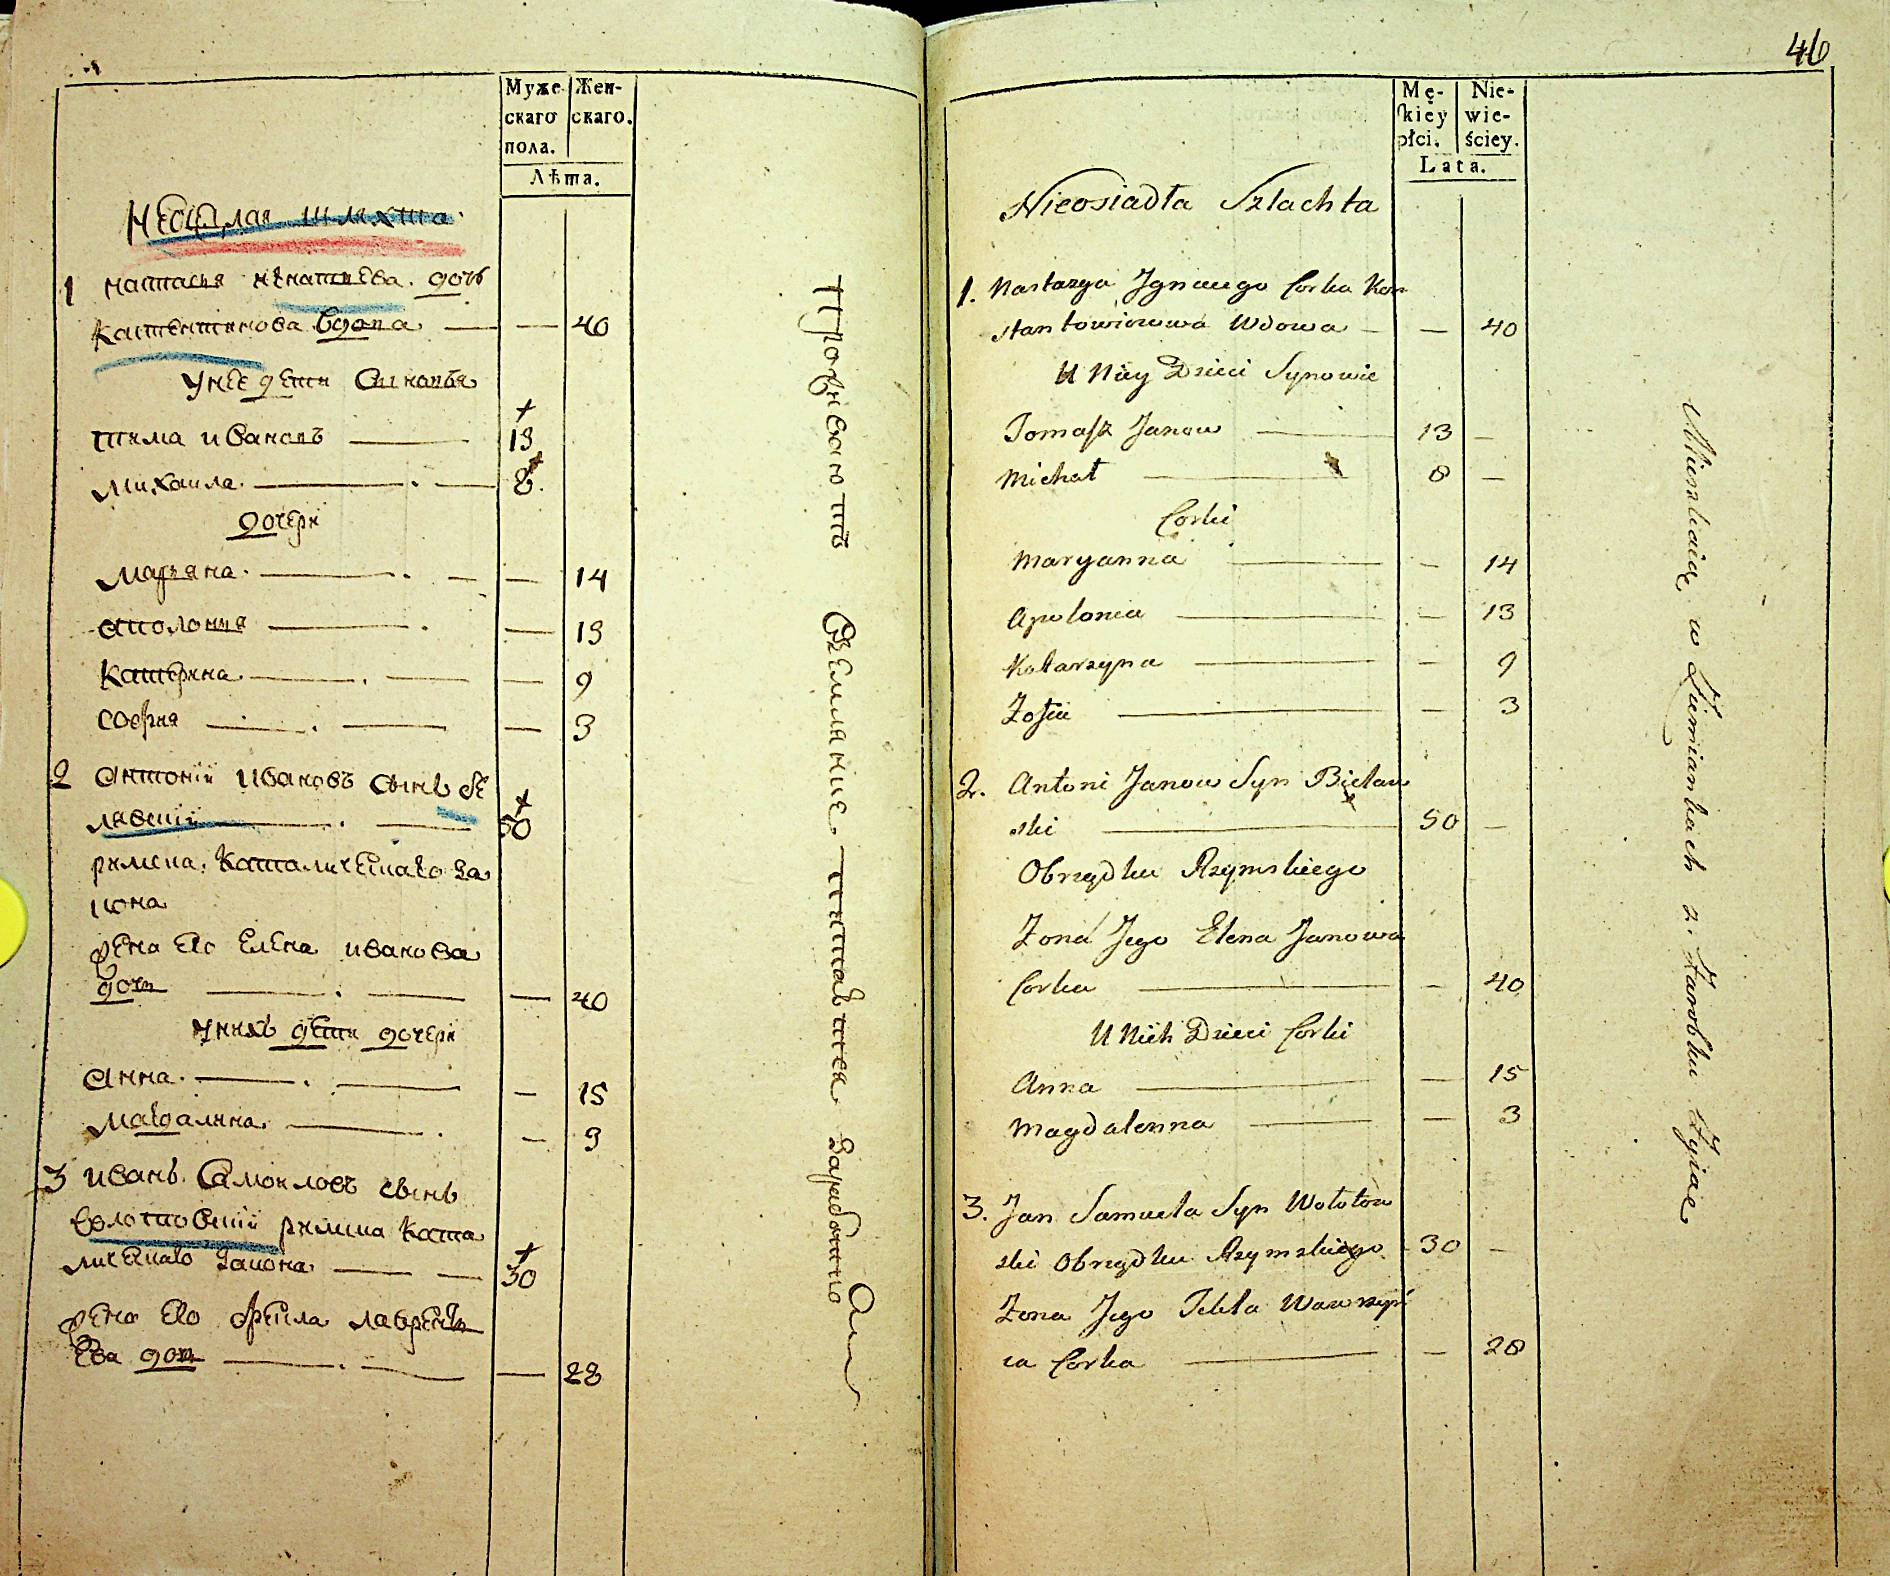 Муже
скаго
пола.
Жен-
скаго.
Лѣта.
Неоседлая шляхта.
1 настасья игнатьева. дочь
Кастентинова вдова — — 40
унее дети сыновья
тима ивановъ — 13
михаила. — 8.
дочери
марьяна. — — 14
аполония — — 13
Катерина — — 9
софия — — 3
2 антонии ивановъ сынъ бе
лявский — 50
римска. католическаго за
кона
жена его елена иванова
дочь — — 40
унихъ дети дочери
анна. — — 15
магдалина. — — 3
3 иванъ. самоиловъ сынъ
волотовский римска като
лическаго закона. — 30
жена его фекла лаврень
ева дочь — — 28
Проживають
земляние питаются заработною
46
Mę-
skiey
płci.
Nie-
wie-
ściey.
Lata.
Nieosiadła Szlachta
1. Nastazya Jgnacego Corka Kon
stantowiczowa Wdowa — — 40
U Niey Dzieci Synowie
Tomasz Janow — 13 —
Michał — 8 —
Corki
Maryanna — — 14
Apolonia — — 13
Katarzyna — — 9
Zofia — — 3
2. Antoni Janow Syn Bielaw
ski — 50 —
Obrządku Rzymskiego
Zona Jego Elena Janowa
Corka — — 40
U Nich Dzieci Corki
Anna — — 15
Magdalenna — — 3
3. Jan Samuela Syn Wołotow
ski Obrządku Rzymskiego 30 —
Zona Jego Tekla Wawrzyń
ca Corka — — 28
Mieszkaią w Ziemiankach z Zarobku Zyiąc